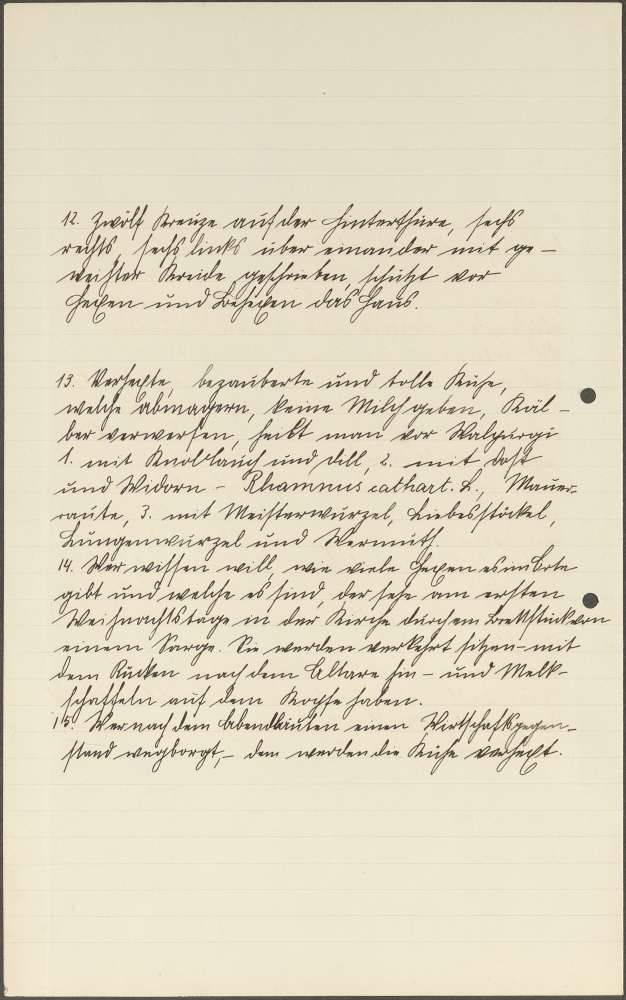 12. Zwölf Kreuze auf der Hinterthüre, sechs
rechts, sechs links über einander mit ge-
weihter Kreide geschrieben, schützt vor
Hexen und Behexen das Haus.
13. Verhexte, bezauberte und tolle Kühe,
welche abmagern, keine Milch geben, Käl-
ber verwerfen, heilt man vor Walpurgi
1. mit Knoblauch und Dill, 2. mit Dost
und Widorn - Rhamnus cathart. L., Mauer-
raute, 3. mit Meisterwurzel, Liebesstöckel,
Lungenwurzel und Wermuth.
14. Wer wissen will, wie viele Hexen es im Orte
gibt und welche es sind, der sehe am ersten
Weihnachtstage in der Kirche durch ein Brettstück von
einem Sarge. Sie werden verkehrt sitzen - mit
dem Rücken nach dem Altare hin - und Melk-
schaffeln auf dem Kopfe haben.
15. Wer nach dem Abendläuten einen Wirtschaftsgegen-
stand wegborgt, - dem werden die Kühe verhext.